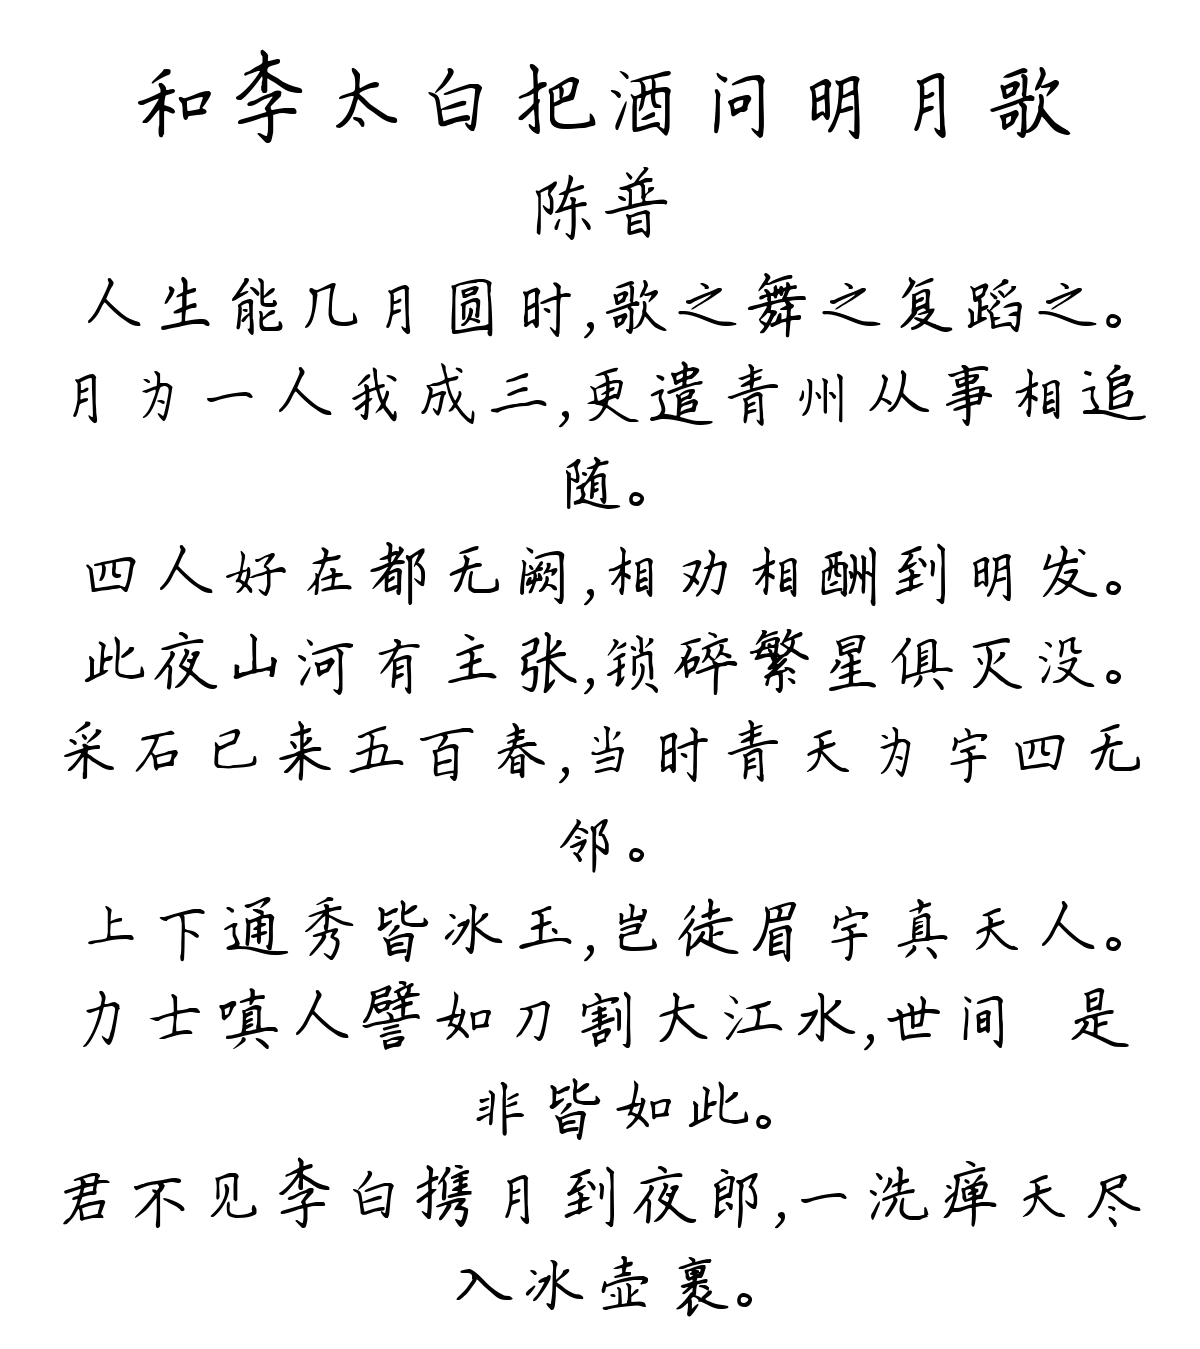 和李太白把酒问明月歌
陈普
人生能几月圆时,歌之舞之复蹈之。
月为一人我成三,更遣青州从事相追
随。
四人好在都无阙,相劝相酬到明发。
此夜山河有主张,锁碎繁星俱灭没。
采石已来五百春,当时青天为宇四无
邻。
上下通秀皆冰玉,岂徒眉宇真天人。
力士嗔人譬如刀割大江水,世间 是
非皆如此。
君不见李白携月到夜郎,一洗瘅天尽
入冰壶裹。